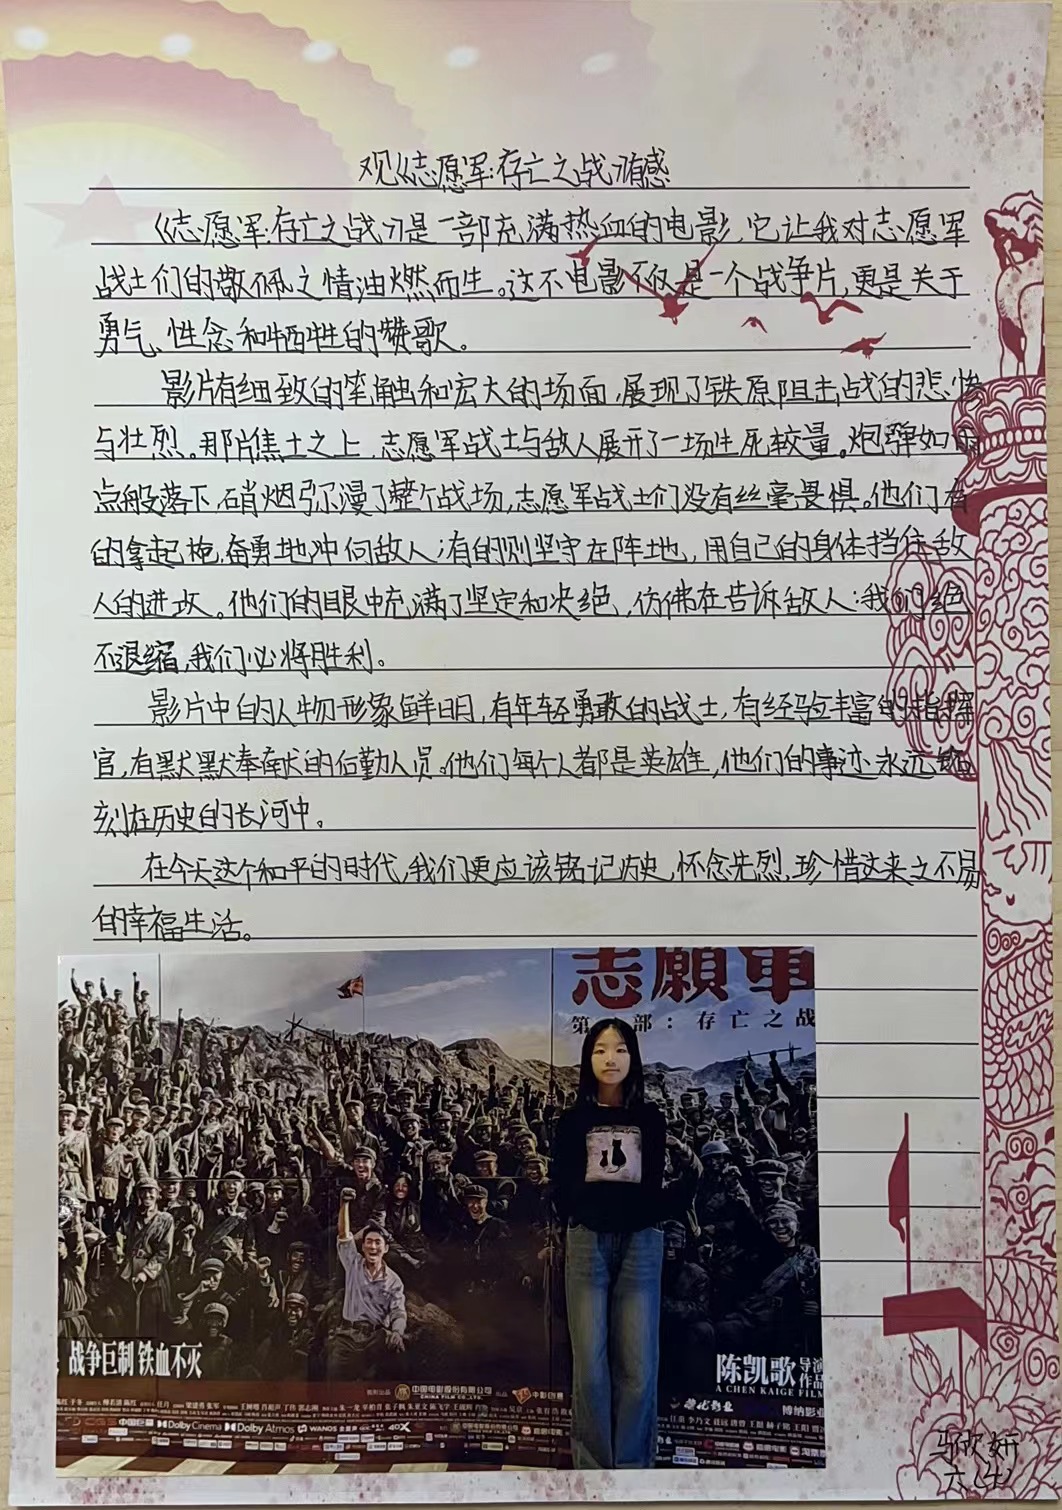 观《志愿军:存亡之战》有感
《志愿军:存亡之战》是一部充满热血的电影,它让我对志愿军
战士们的敬佩之情油燃而生。这不电影不仅是一个战争片,更是关于
勇气、性念和牺牲的赞歌。
影片有细致的笔触和宏大的场面,展现了铁原阻击战的悲惨
与壮烈。那片焦土之上,志愿军战士与敌人展开了一场生死较量。炮弹如雨
点般落下,硝烟弥漫了整个战场,志愿军战士们没有丝毫畏惧。他们有
的拿起枪,奋勇地冲向敌人;有的则坚守在阵地,用自己的身体挡住敌
人的进攻。他们的眼中充满了坚定和决绝,仿佛在告诉敌人:我们绝
不退缩,我们必将胜利。
影片中的人物形象鲜明,有年轻勇敢的战士,有经验丰富的指挥
官,有默默奉献的后勤人员。他们每个人都是英雄,他们的事迹永远铭
刻在历史的长河中。
在今天这个和平的时代,我们更应该铭记历史,怀念先烈,珍惜这来之不易
的幸福生活。
志願軍
第 部:存亡之战
战争巨制 铁血不灭
陈凯歌 导演作品
A CHEN KAIGE FILM
中国电影股份有限公司
CHINA FILM CO.,LTD.
中影创意
博纳影业
Dolby Cinema Dolby Atmos WANOS 4DX
欣妍
六(七)